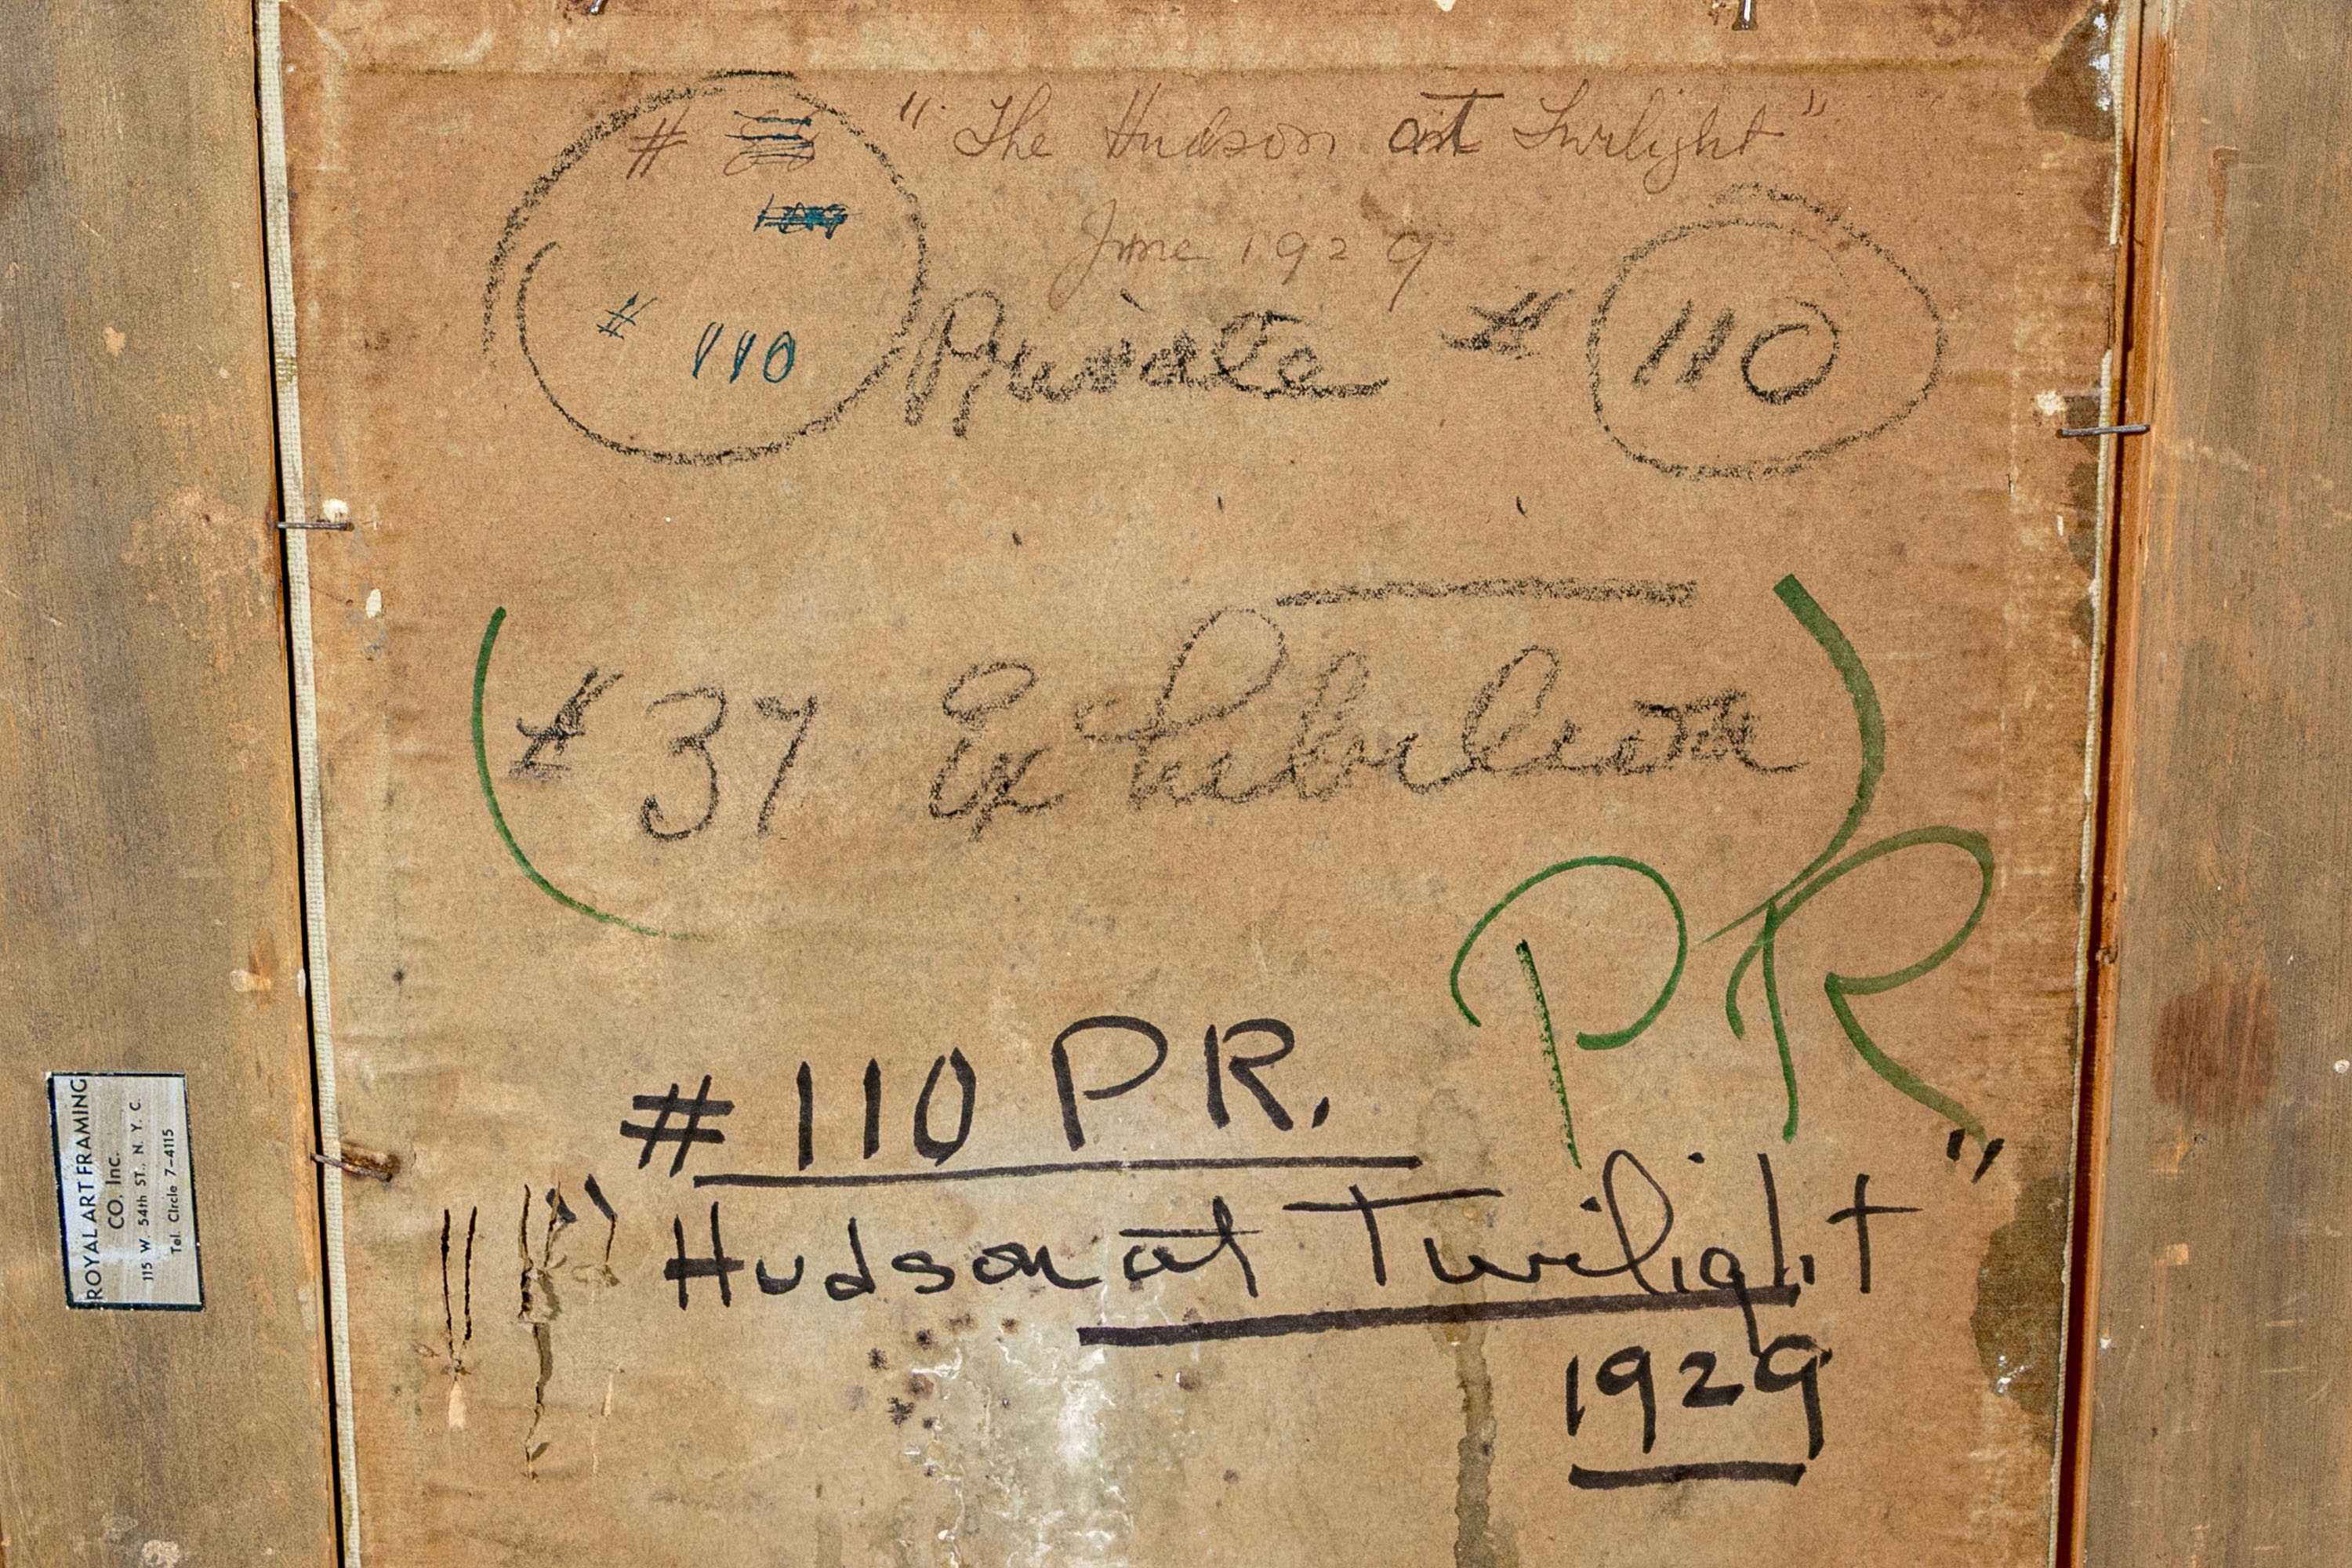 # "The Hudson at Twilight"
June 1929
# 110
Private # 110
# 37 Ex
PR
# 110 PR.
"Hudson at Twilight"
1929
ROYAL ART FRAMING
CO. Inc.
115 W. 54th ST., N. Y. C.
Tel. CIrcle 7-4115